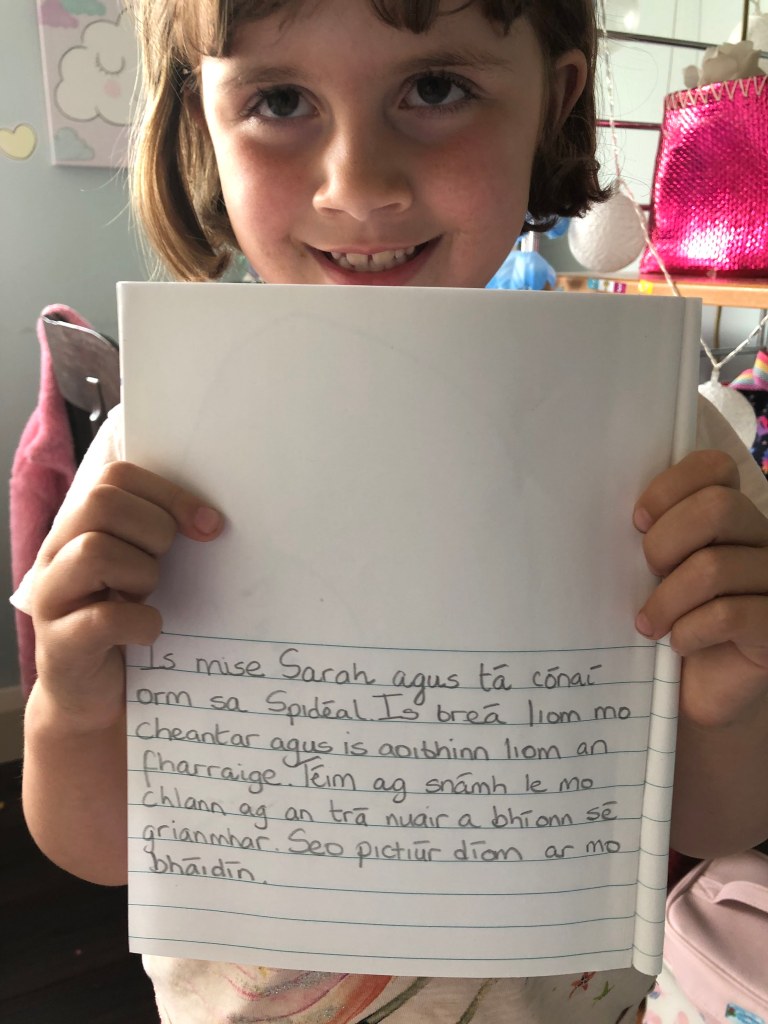 Is mise Sarah agus tá cónaí
orm sa Spidéal. Is breá liom mo
cheantar agus is aoibhinn liom an
fharraige. Téim ag snámh le mo
chlann ag an trá nuair a bhíonn sé
grianmhar. Seo pictiúr díom ar mo
bháidín.